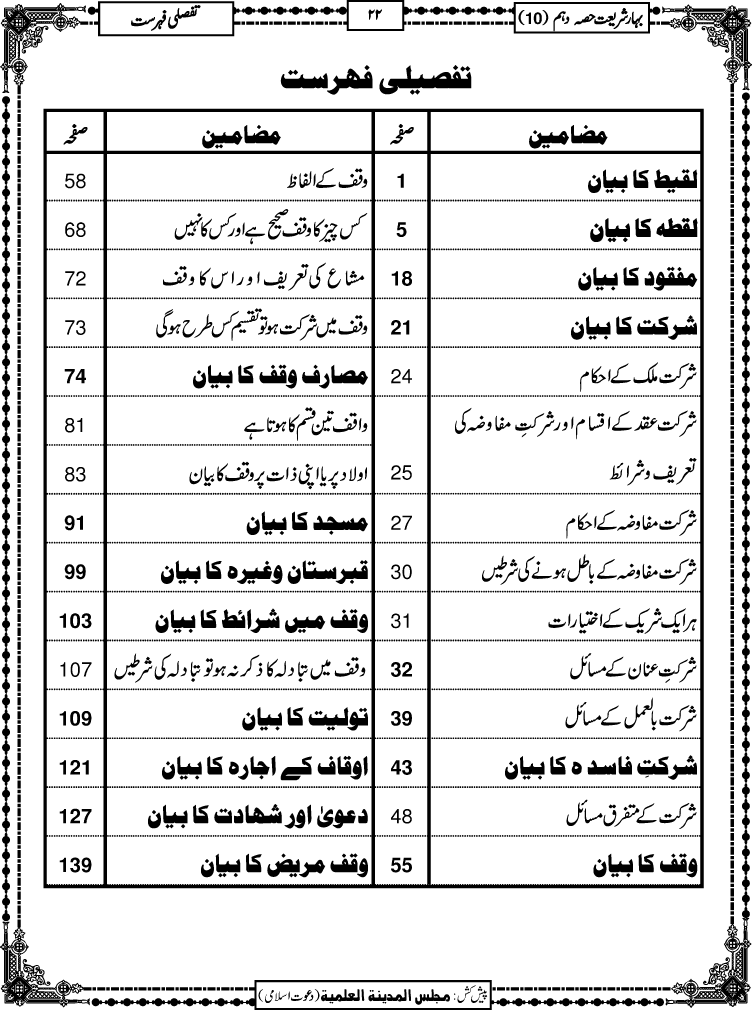 بہارشریعت حصہ دہم (10)
۲۲
تفصیلی فہرست
تفصیلی فہرست
مضامین صفحہ مضامین صفحہ
لقیط کا بیان 1 وقف کے الفاظ 58
لقطہ کا بیان 5 کس چیز کا وقف صحیح ہے اور کس کا نہیں 68
مفقود کا بیان 18 مشاع کی تعریف اور اس کا وقف 72
شرکت کا بیان 21 وقف میں شرکت ہو تو تقسیم کس طرح ہوگی 73
شرکت ملک کے احکام 24 مصارف وقف کا بیان 74
شرکت عقد کے اقسام اور شرکتِ مفاوضہ کی واقف تین قسم کا ہوتا ہے 81
تعریف و شرائط 25 اولاد پر یا اپنی ذات پر وقف کا بیان 83
شرکت مفاوضہ کے احکام 27 مسجد کا بیان 91
شرکت مفاوضہ کے باطل ہونے کی شرطیں 30 قبرستان وغیرہ کا بیان 99
ہر ایک شریک کے اختیارات 31 وقف میں شرائط کا بیان 103
شرکتِ عنان کے مسائل 32 وقف میں تبادلہ کا ذکر نہ ہو تو تبادلہ کی شرطیں 107
شرکت بالعمل کے مسائل 39 تولیت کا بیان 109
شرکتِ فاسدہ کا بیان 43 اوقاف کے اجارہ کا بیان 121
شرکت کے متفرق مسائل 48 دعویٰ اور شھادت کا بیان 127
وقف کا بیان 55 وقف مریض کا بیان 139
پیش کش: مجلس المدینۃ العلمیۃ (دعوت اسلامی)